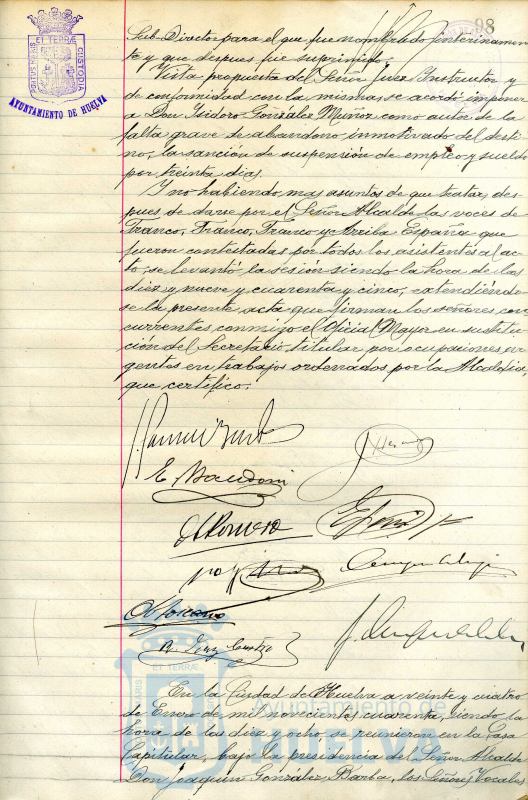 98
PORTUS MARIS ET TERRÆ CUSTODIA
AYUNTAMIENTO DE HUELVA
Sub-Director para el que fue nombrado interinamen-
te y que despues fue suprimido.
Vista propuesta del Señor Juez Instructor y
de conformidad con la misma, se acordó imponer
a Don Isidoro González Muñoz como autor de la
falta grave de abandono inmotivado del desti-
no, la sanción de suspensión de empleo y sueldo
por treinta dias.
Y no habiendo mas asuntos de que tratar, des-
pues de darse por el Señor Alcalde las voces de
Franco, Franco, Franco y Arriba España que
fueron contestadas por todos los asistentes al ac-
to, se levantó la sesión siendo la hora de las
diez y nueve y cuarenta y cinco, extendiéndo-
se la presente acta que firman los señores con-
currentes conmigo el Oficial Mayor en sustitu-
ción del Secretario titular por ocupaciones ur-
gentes en trabajos ordenados por la Alcaldia,
que certifico.
Romero
En la Ciudad de Huelva a veinte y cuatro
de Enero de mil novecientos cuarenta, siendo la
hora de las diez y ocho, se reunieron en la Casa
Capitular, bajo la presidencia del Señor Alcalde
Don Joaquin González Barba, los Señores Vocales
Ayuntamiento de
Huelva